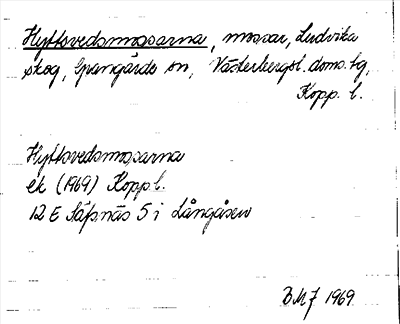 Hyttsvedsmossarna, mossar, Ludvika
skog, Grangärde sn, Västerbergsl. doms. tg,
Kopp. l.
Hyttsvedsmossarna
ek (1969) Kopp l.
12 E Säfsnäs 5 i Långåsen
BMJ 1969